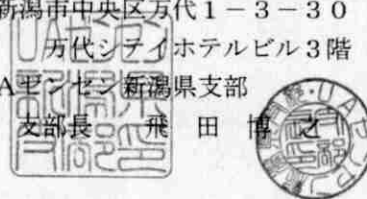 新潟市中央区万代１－３－３０
万代シテイホテルビル３階
Aゼンセン新潟県支部
支部長 飛田博之